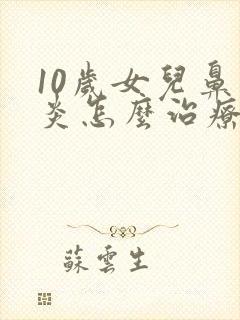 10歲女兒鼻
炎怎麼治療
蘇雲生